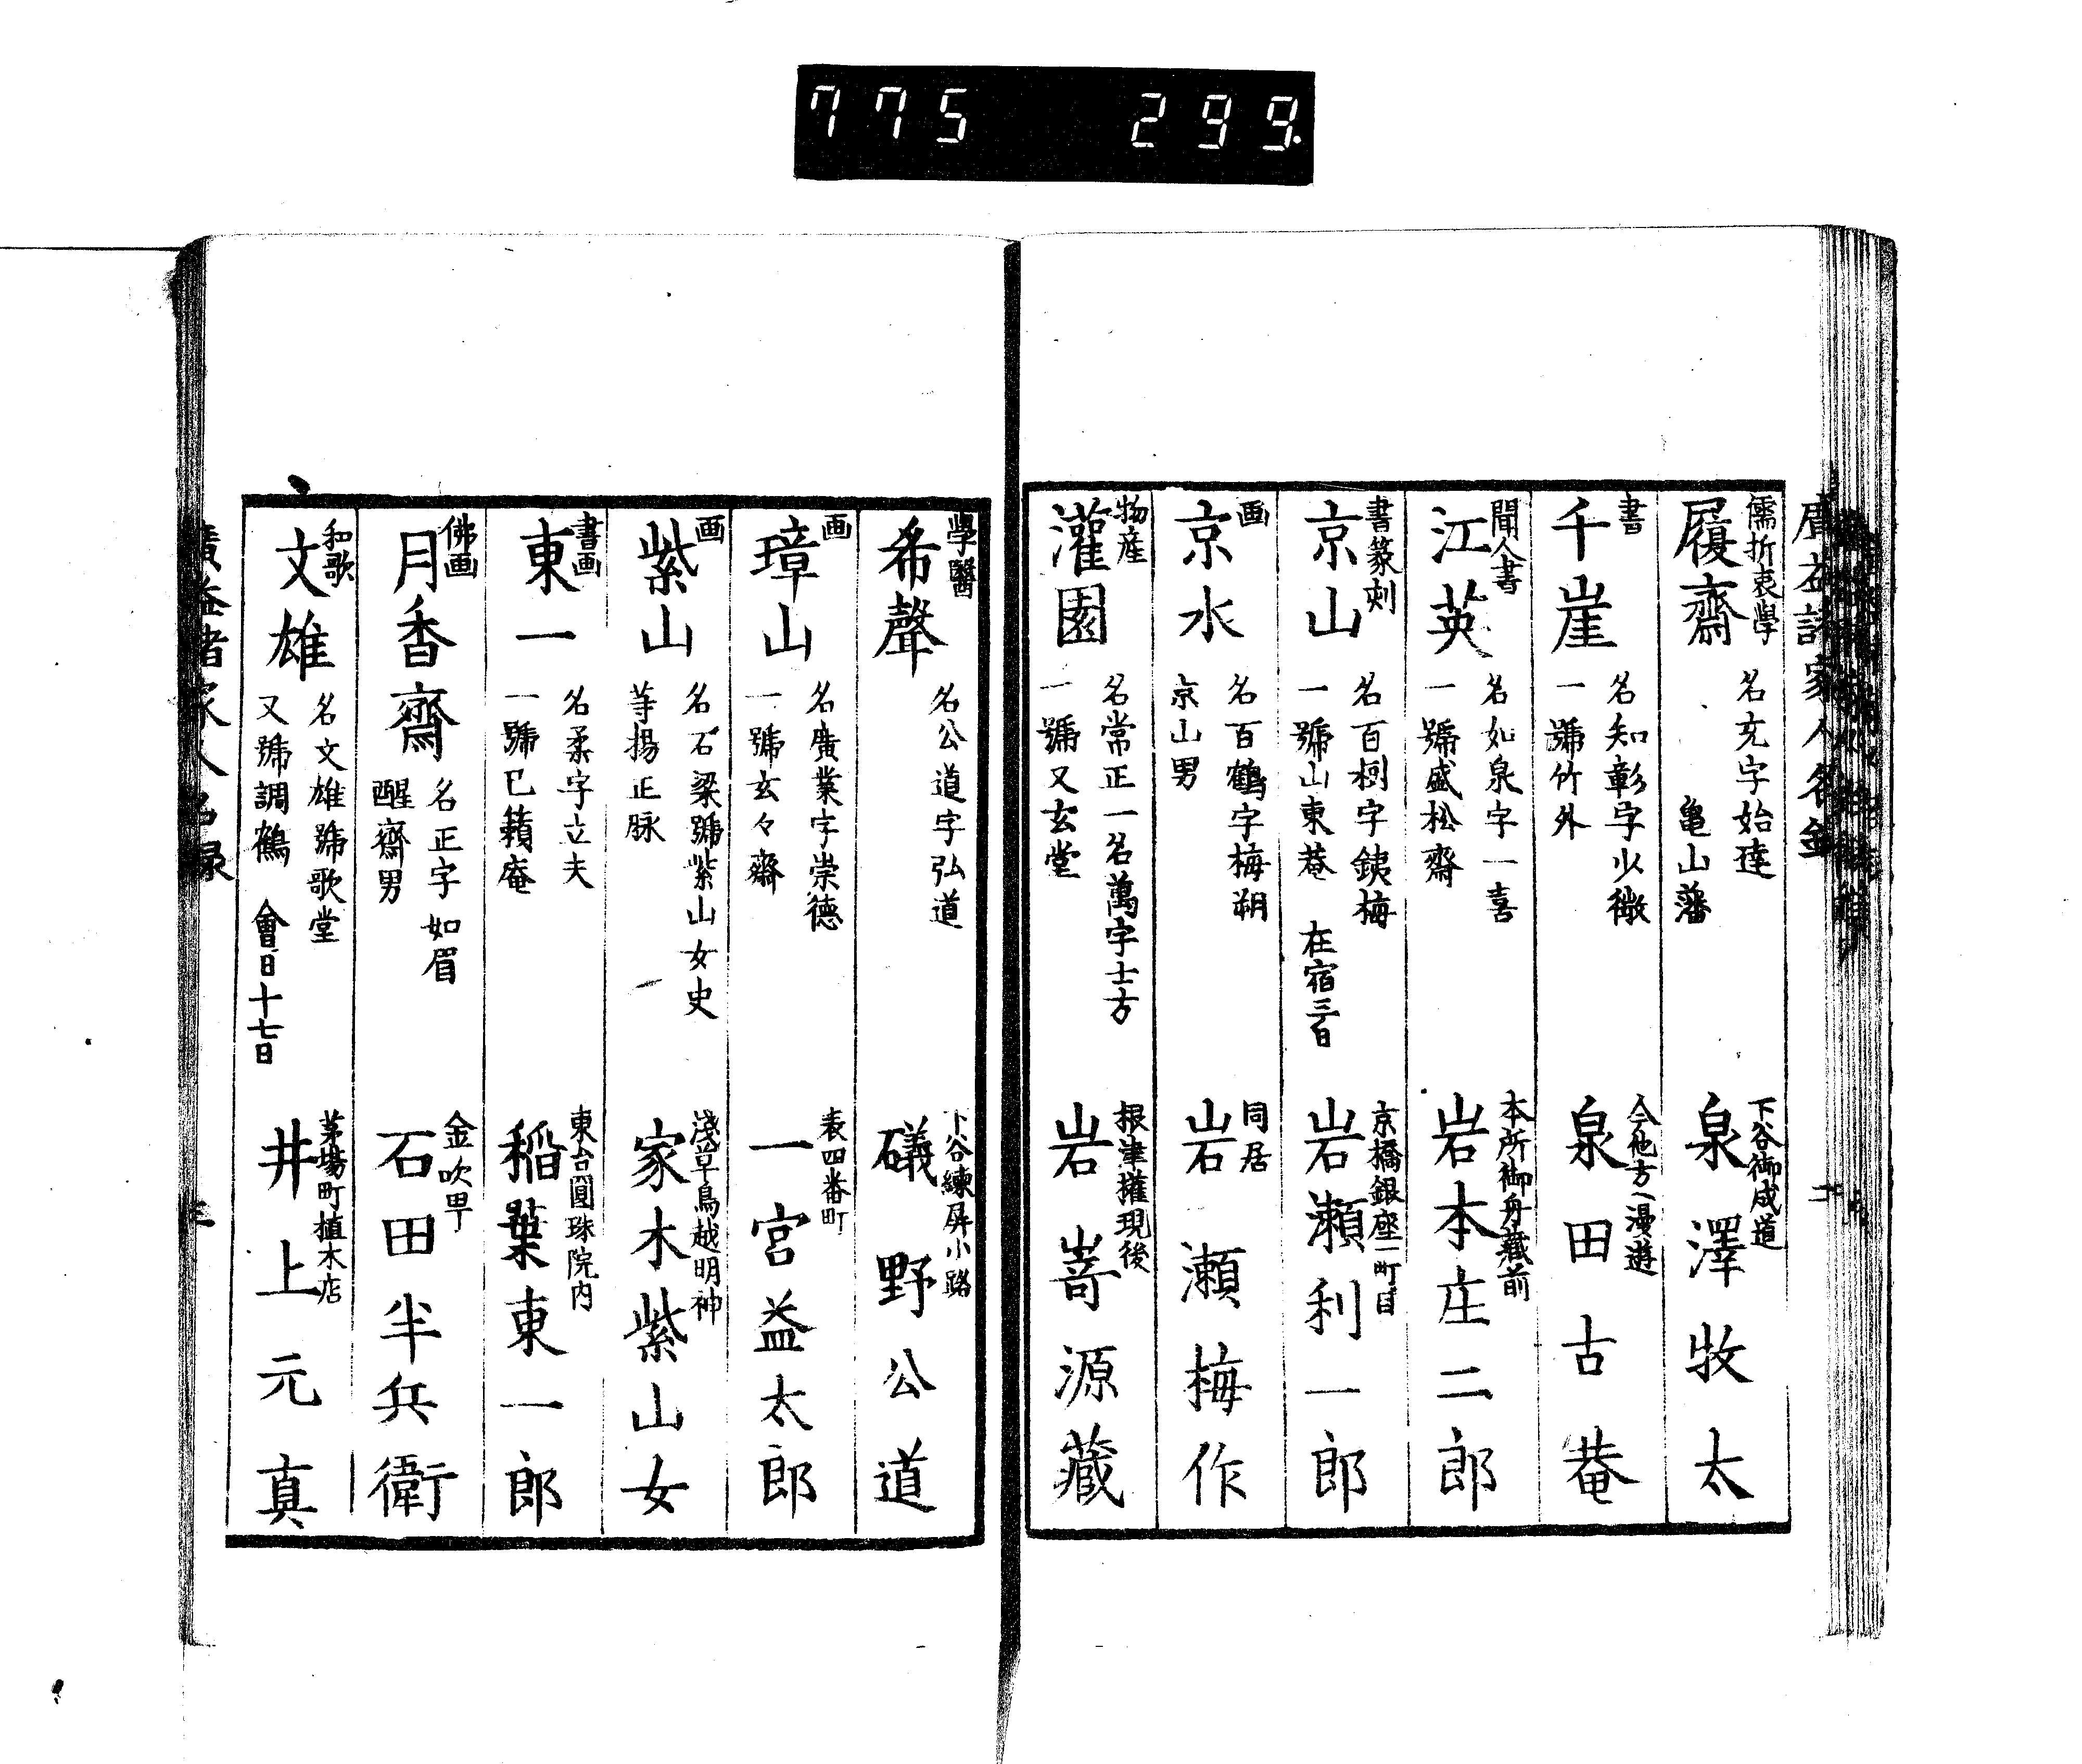 775 299.
儒折衷學
履齋
名充字始達
亀山藩
下谷御成道
泉澤牧太
書
千崖
名知彰字少微
一號竹外
今他方へ漫遊
泉田古菴
聞人書
江英
名如泉字一喜
一號盛松齋
本所御舟藏前
岩本庄二郎
書篆刻
京山
名百樹字銕梅
一號山東菴 在宿三百
京橋銀座一町目
岩瀬利一郎
画
京水
名百鶴字梅朔
京山男
同居
岩瀬梅作
物産
灌園
名常正一名萬字士方
一號又玄堂
根津權現後
岩嵜源藏
學醫
希聲
名公道字弘道
下谷練屏小路
礒野公道
画
璋山
名廣業字崇德
一號玄々齋
表四番町
一宮益太郎
画
紫山
名石梁號紫山女史
等揚正脉
淺草鳥越明神
家木紫山女
書画
東一
名柔字立夫
一號巳籟庵
東台圓珠院内
稲葉東一郎
佛画
月香齋
名正字如眉
醒齋男
金吹町
石田半兵衛
和歌
文雄
名文雄號歌堂
又號調鶴 會日十七日
茅場町植木店
井上元真
廣益諸家人名録
三